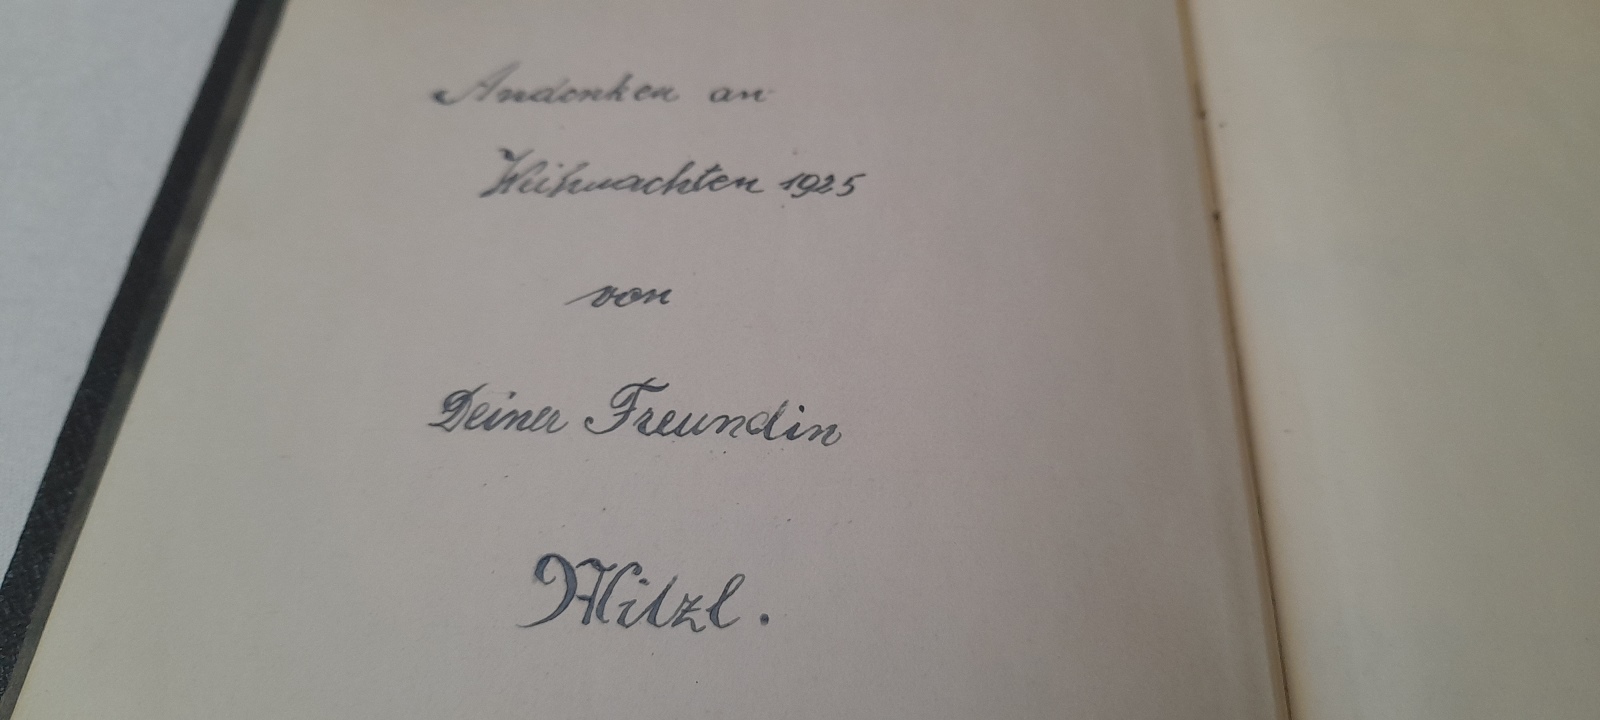 Andenken an
Weihnachten 1925
von
Deiner Freundin
Mitzl.